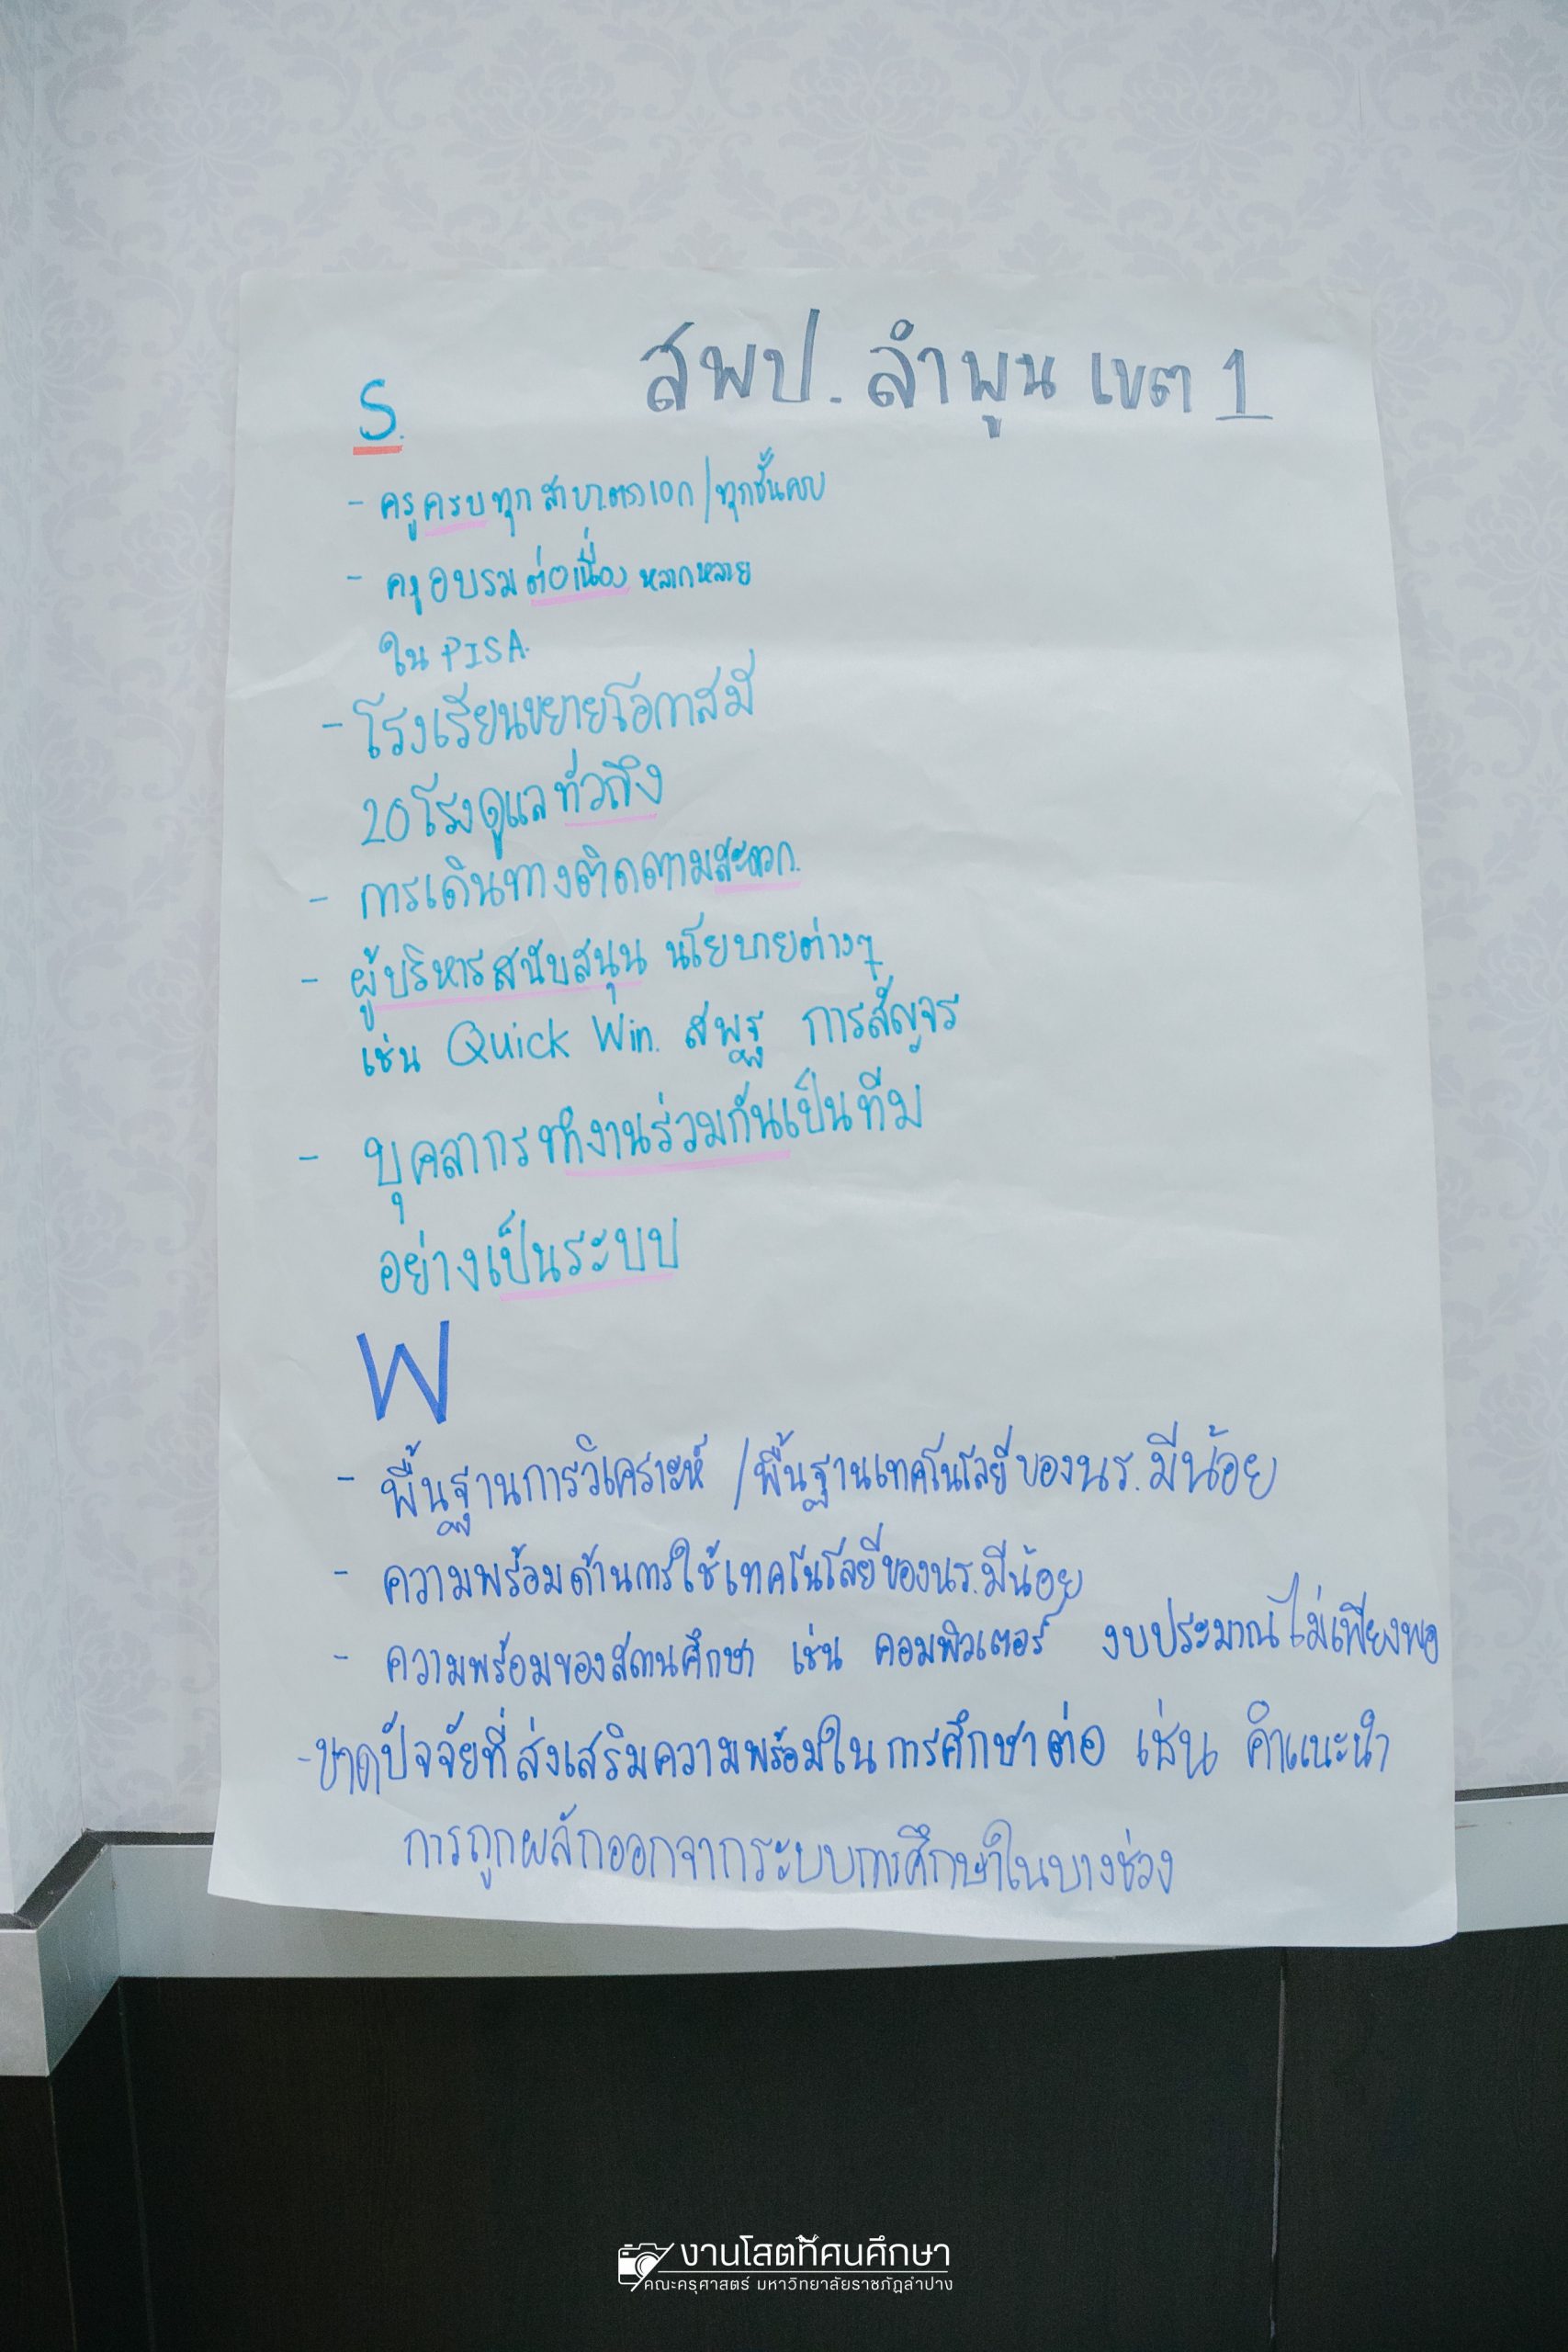 สพป. ลำพูน เขต 1
S.
- ครูครบทุกสาขาตรงเอก/ทุกชั้นครบ
- ครูอบรมต่อเนื่อง หลากหลาย
ใน PISA.
- โรงเรียนขยายโอกาสมี
20 โรงดูแลทั่วถึง
- การเดินทางติดตามสะดวก.
- ผู้บริหารสนับสนุน นโยบายต่างๆ
เช่น Quick Win. สพฐ การสัญจร
- บุคลากรทำงานร่วมกันเป็นทีม
อย่างเป็นระบบ
W
- พื้นฐานการวิเคราะห์ /พื้นฐานเทคโนโลยีของนร.มีน้อย
- ความพร้อมด้านการใช้เทคโนโลยีของนร.มีน้อย
- ความพร้อมของสถานศึกษา เช่น คอมพิวเตอร์ งบประมาณไม่เพียงพอ
- ขาดปัจจัยที่ส่งเสริมความพร้อมในการศึกษาต่อ เช่น คำแนะนำ
การถูกผลักออกจากระบบการศึกษาในบางช่วง
งานโสตทัศนศึกษา
คณะครุศาสตร์ มหาวิทยาลัยราชภัฏลำปาง